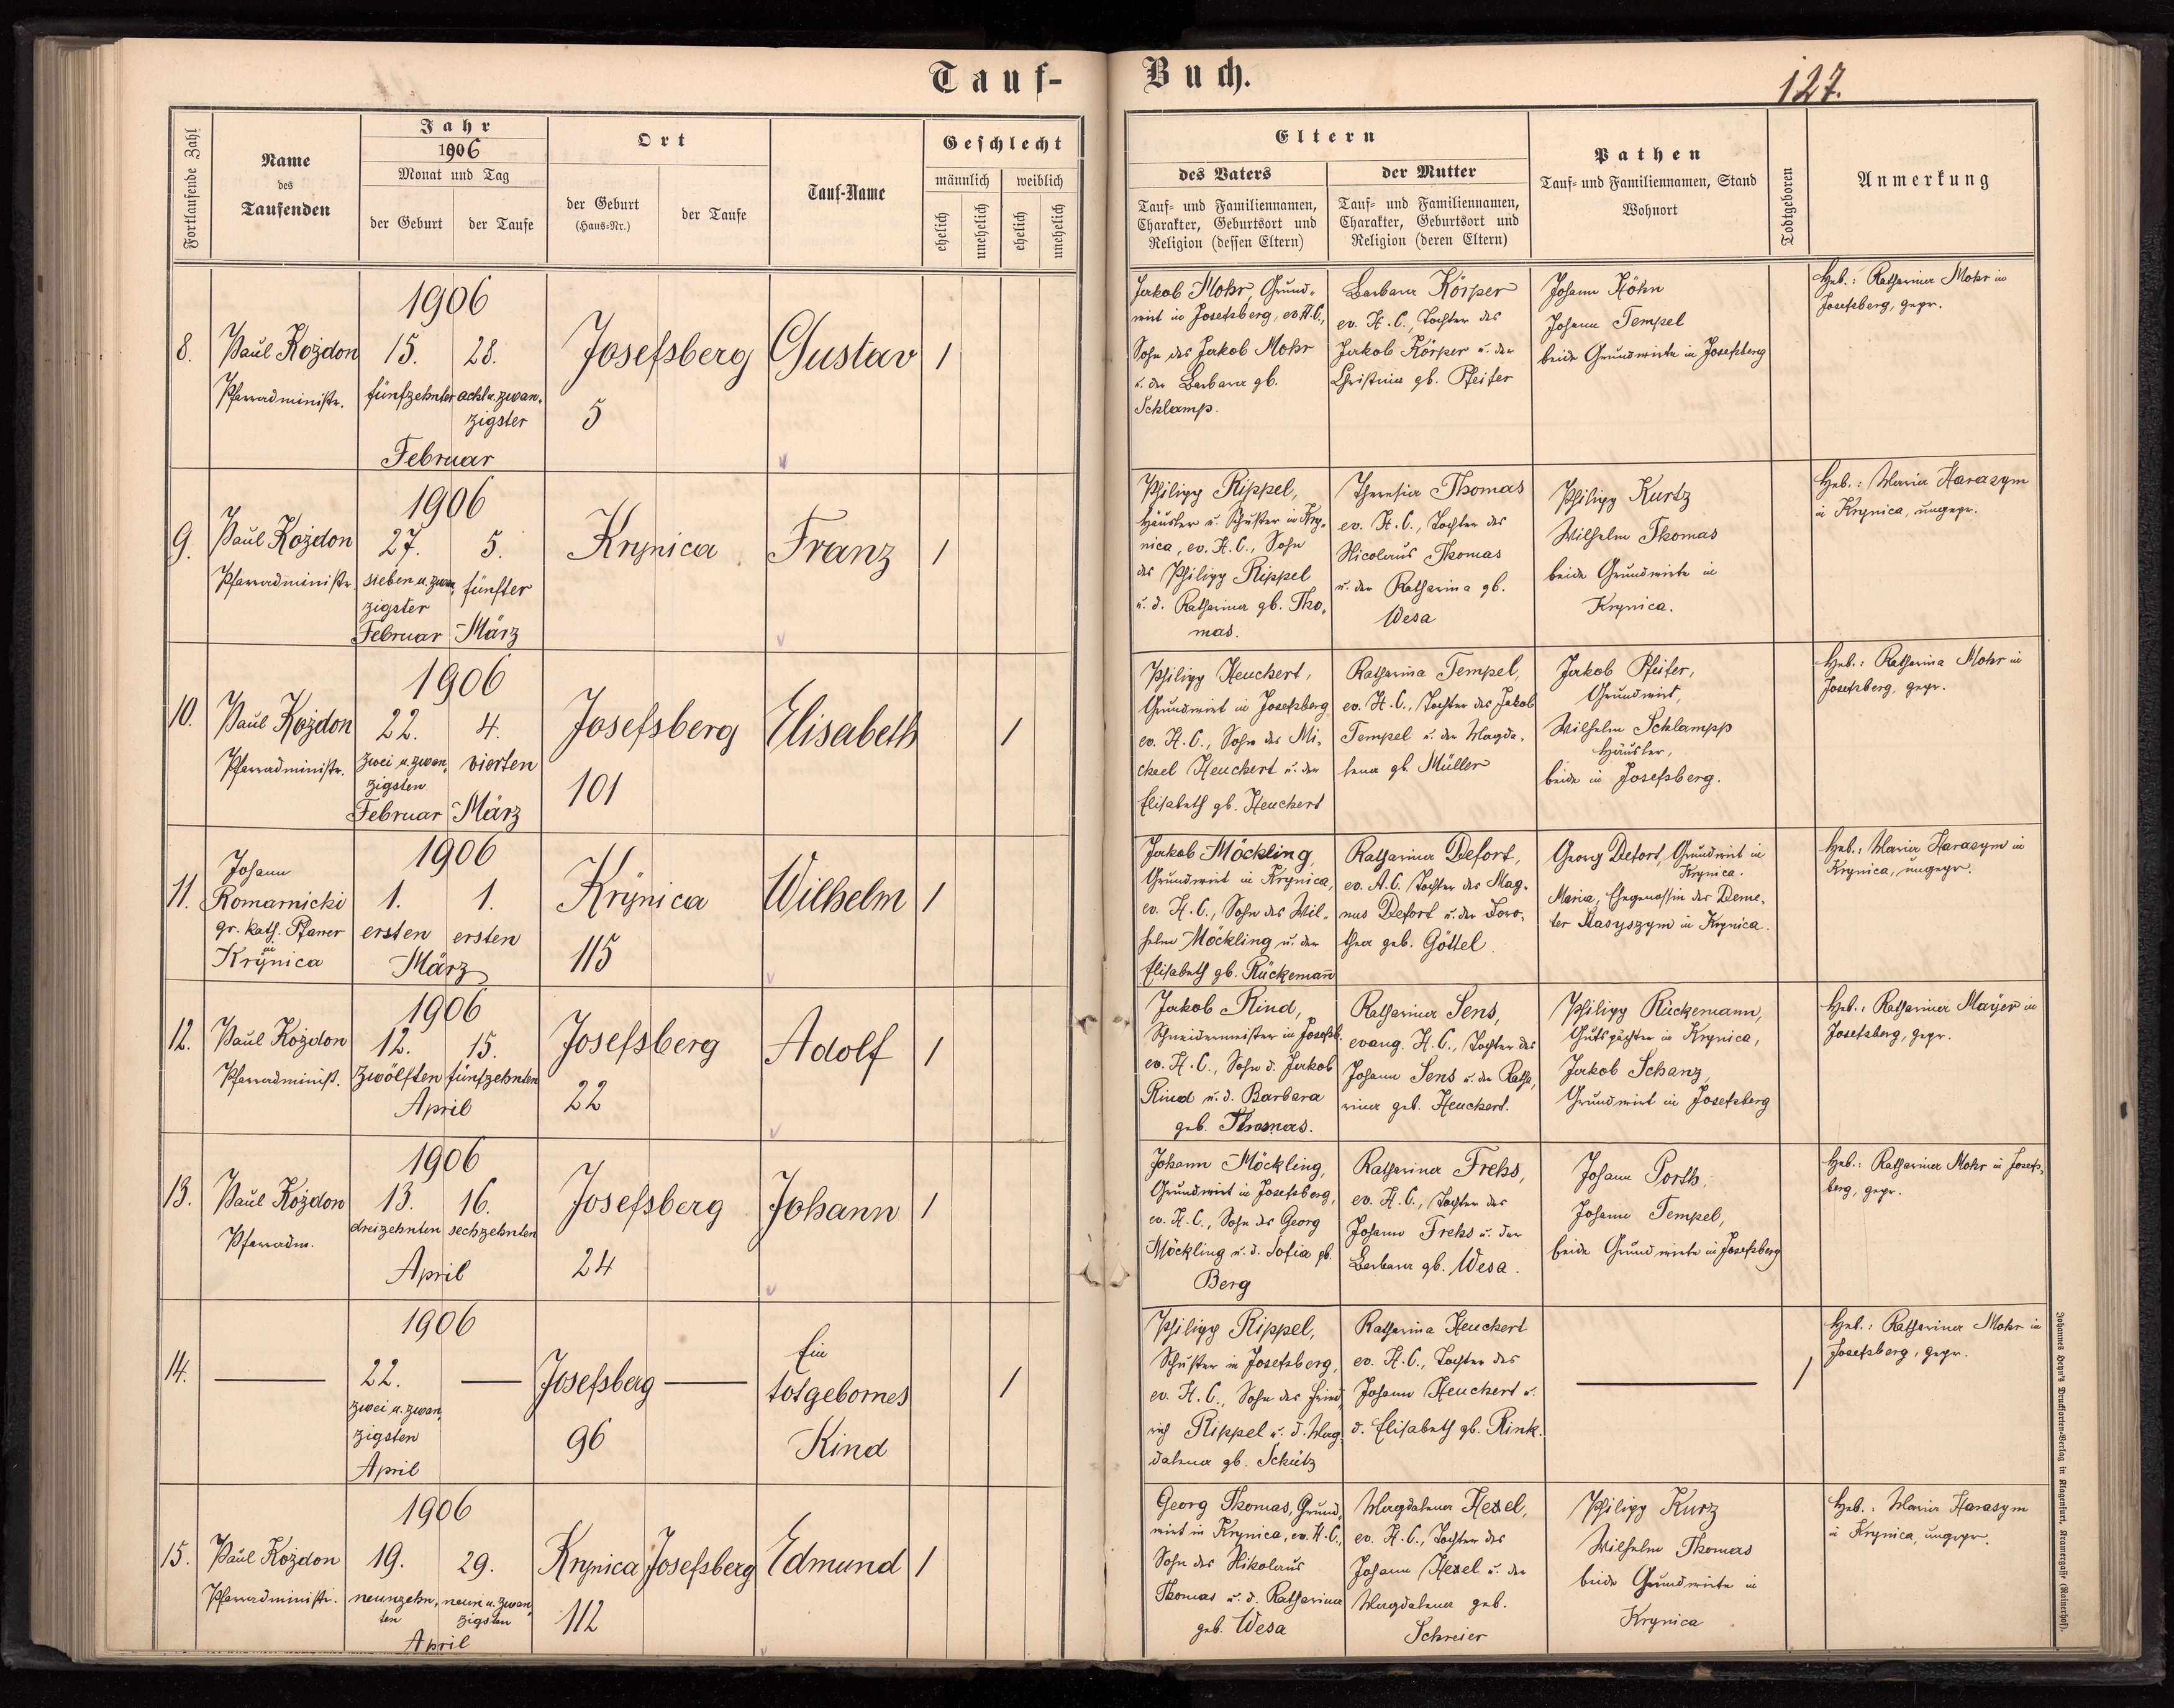 Tauf-
Buch.
127.
Fortlaufende Zahl
Name
des
Taufenden
Jahr
1906
Monat und Tag
der Geburt
der Taufe
Ort
der Geburt
(Haus-Nr.)
der Taufe
Tauf-Name
Geschlecht
männlich
weiblich
ehelich
unehelich
ehelich
unehelich
Eltern
des Vaters
Tauf- und Familiennamen,
Charakter, Geburtsort und
Religion (dessen Eltern)
der Mutter
Tauf- und Familiennamen,
Charakter, Geburtsort und
Religion (deren Eltern)
Pathen
Tauf- und Familiennamen, Stand
Wohnort
Todtgeboren
Anmerkung
8.
Paul Kożdon
Pfarradministr.
1906
15. 28.
fünfzehnter acht u. zwan-
zigster
Februar
Josefsberg
5
Gustav
1
Jakob Mohr, Grund-
wirt in Josefsberg, ev. H.C.,
Sohn des Jakob Mohr
u. der Barbara gb.
Schlamp.
Barbara Körper
ev. H.C., Tochter des
Jakob Körper u. der
Christina gb. Pfeifer
Johann Höhn
Johann Tempel
beide Grundwirte in Josefsberg
Heb.: Katharina Mohr in
Josefsberg, gepr.
9.
Paul Kożdon
Pfarradministr.
1906
27. 5.
sieben u. zwan- fünfter
zigster
Februar März
Krynica
Franz
1
Philipp Rippel,
Häusler u. Schuster in Kry-
nica, ev. H.C., Sohn
des Philipp Rippel
u. d. Katharina gb. Tho-
mas.
Theresia Thomas
ev. H.C., Tochter des
Nicolaus Thomas
u. der Katharina gb.
Wesa
Philipp Kurtz
Wilhelm Thomas
beide Grundwirte in
Krynica.
Heb.: Maria Harasym
in Krynica, ungepr.
10.
Paul Kożdon
Pfarradministr.
1906
22. 4.
zwei u. zwan- vierten
zigsten
Februar März
Josefsberg
101
Elisabeth
1
Philipp Heuchert,
Grundwirt in Josefsberg
ev. H.C., Sohn des Mi-
chael Heuchert u. der
Elisabeth gb. Heuchert
Katharina Tempel,
ev. H.C., Tochter des Jakob
Tempel u. der Magda-
lena gb. Müller
Jakob Pfeifer,
Grundwirt,
Wilhelm Schlampp
Häusler,
beide in Josefsberg.
Heb.: Katharina Mohr in
Josefsberg, gepr.
11.
Johann
Romarnicki
gr. kath. Pfarrer
in
Krynica
1906
1. 1.
ersten ersten
März
Krynica
115
Wilhelm
1
Jakob Möckling,
Grundwirt in Krynica,
ev. H.C., Sohn des Wil-
helm Möckling u. der
Elisabeth gb. Rückemann
Katharina Defort,
ev. A.C. Tochter des Mag-
nus Defort u. der Doro-
thea geb. Göttel.
Georg Defort, Grundwirt in
Krynica.
Maria, Ehegenossin des Deme-
ter Stasyszym in Krynica.
Heb.: Maria Harasym in
Krynica, ungepr.
12.
Paul Kożdon
Pfarradminist.
1906
12. 15.
zwölften fünfzehnten
April
Josefsberg
22
Adolf
1
Jakob Rind,
Schneidermeister in Josefsb.
ev. H.C., Sohn d. Jakob
Rind u. d. Barbara
geb. Thomas.
Katharina Sens,
evang. H.C., Tochter des
Johann Sens u. der Katha-
rina geb. Heuchert.
Philipp Rückemann,
Gutspächter in Krynica,
Jakob Schanz,
Grundwirt in Josefsberg
Heb.: Katharina Mayer in
Josefsberg, gepr.
13.
Paul Kożdon
Pfarradm.
1906
13. 16.
dreizehnten sechzehnten
April
Josefsberg
24
Johann
1
Johann Möckling,
Grundwirt in Josefsberg,
ev. H.C., Sohn des Georg
Möckling u. d. Sofia gb.
Berg
Katharina Frehs,
ev. H.C., Tochter des
Johann Frehs u. der
Barbara gb. Wesa.
Johann Porth,
Johann Tempel,
beide Grundwirte in Josefsberg
Heb.: Katharina Mohr in Josefs-
berg, gepr.
14.
1906
22.
zwei u. zwan-
zigsten
April
Josefsberg
96
Ein
totgebornes
Kind
1
Philipp Rippel,
Schuster in Josefsberg,
ev. H.C., Sohn des Fried-
rich Rippel u. d. Mag-
dalena gb. Schütz
Katharina Heuchert
ev. H.C., Tochter des
Johann Heuchert u.
d. Elisabeth gb. Rink.
1
Heb.: Katharina Mohr in
Josefsberg, gepr.
15.
Paul Kożdon
Pfarradministr.
1906
19. 29.
neunzehn- neun u. zwan-
ten zigsten
April
Krynica
112
Josefsberg
Edmund
1
Georg Thomas, Grund-
wirt in Krynica, ev. H.C.,
Sohn des Nikolaus
Thomas u. d. Katharina
geb. Wesa
Magdalena Hexel,
ev. H.C., Tochter des
Johann Hexel u. der
Magdalena geb.
Schreier
Philipp Kurz
Wilhelm Thomas
beide Grundwirte in
Krynica
Heb.: Maria Harasym
in Krynica, ungepr.
Johannes Heyn's Drucksorten-Verlag in Klagenfurt, Kramergasse (Rainerhof).